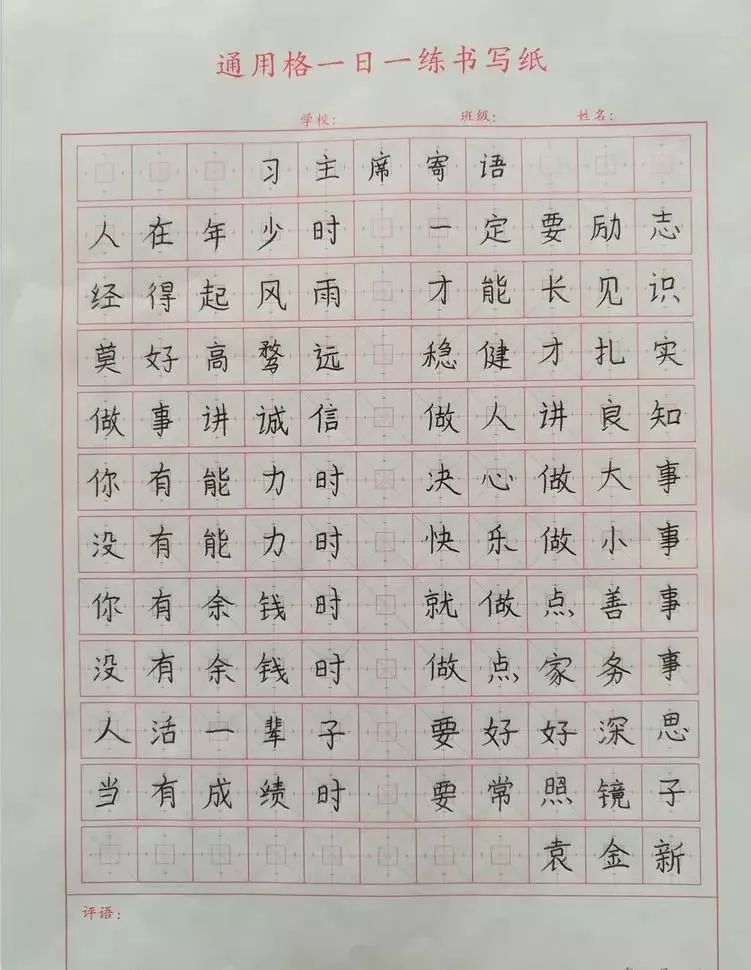 通用格一日一练书写纸
学校： 班级： 姓名：
习主席寄语
人在年少时 一定要励志
经得起风雨 才能长见识
莫好高骛远 稳健才扎实
做事讲诚信 做人讲良知
你有能力时 决心做大事
没有能力时 快乐做小事
你有余钱时 就做点善事
没有余钱时 做点家务事
人活一辈子 要好好深思
当有成绩时 要常照镜子
袁金新
评语：